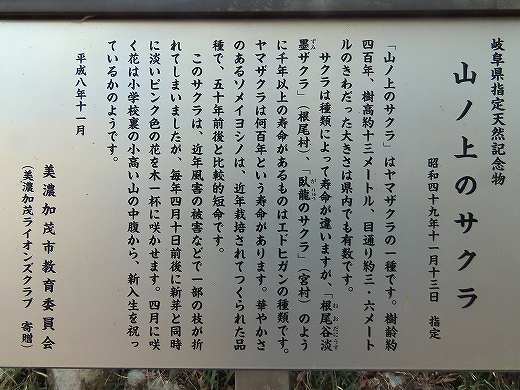 岐阜県指定天然記念物
山ノ上のサクラ
昭和四十九年十一月十三日 指定
「山ノ上のサクラ」はヤマザクラの一種です。樹齢約
四百年、樹高約十三メートル、目通り約三・六メート
ルのきわだった大きさは県内でも有数です。
サクラは種類によって寿命が違いますが、「根尾谷淡
墨ザクラ」（根尾村）、「臥龍のサクラ」（宮村）のよう
に千年以上の寿命があるものはエドヒガンの種類です。
ヤマザクラは何百年という寿命があります。華やかさ
のあるソメイヨシノは、近年栽培されてつくられた品
種で、五十年前後と比較的短命です。
このサクラは、近年風害の被害などで一部の枝が折
れてしまいましたが、毎年四月十日前後に新芽と同時
に淡いピンク色の花を木一杯に咲かせます。四月に咲
く花は小学校裏の小高い山の中腹から、新入生を祝っ
ているかのようです。
平成八年十一月
美濃加茂市教育委員会
（美濃加茂ライオンズクラブ 寄贈）